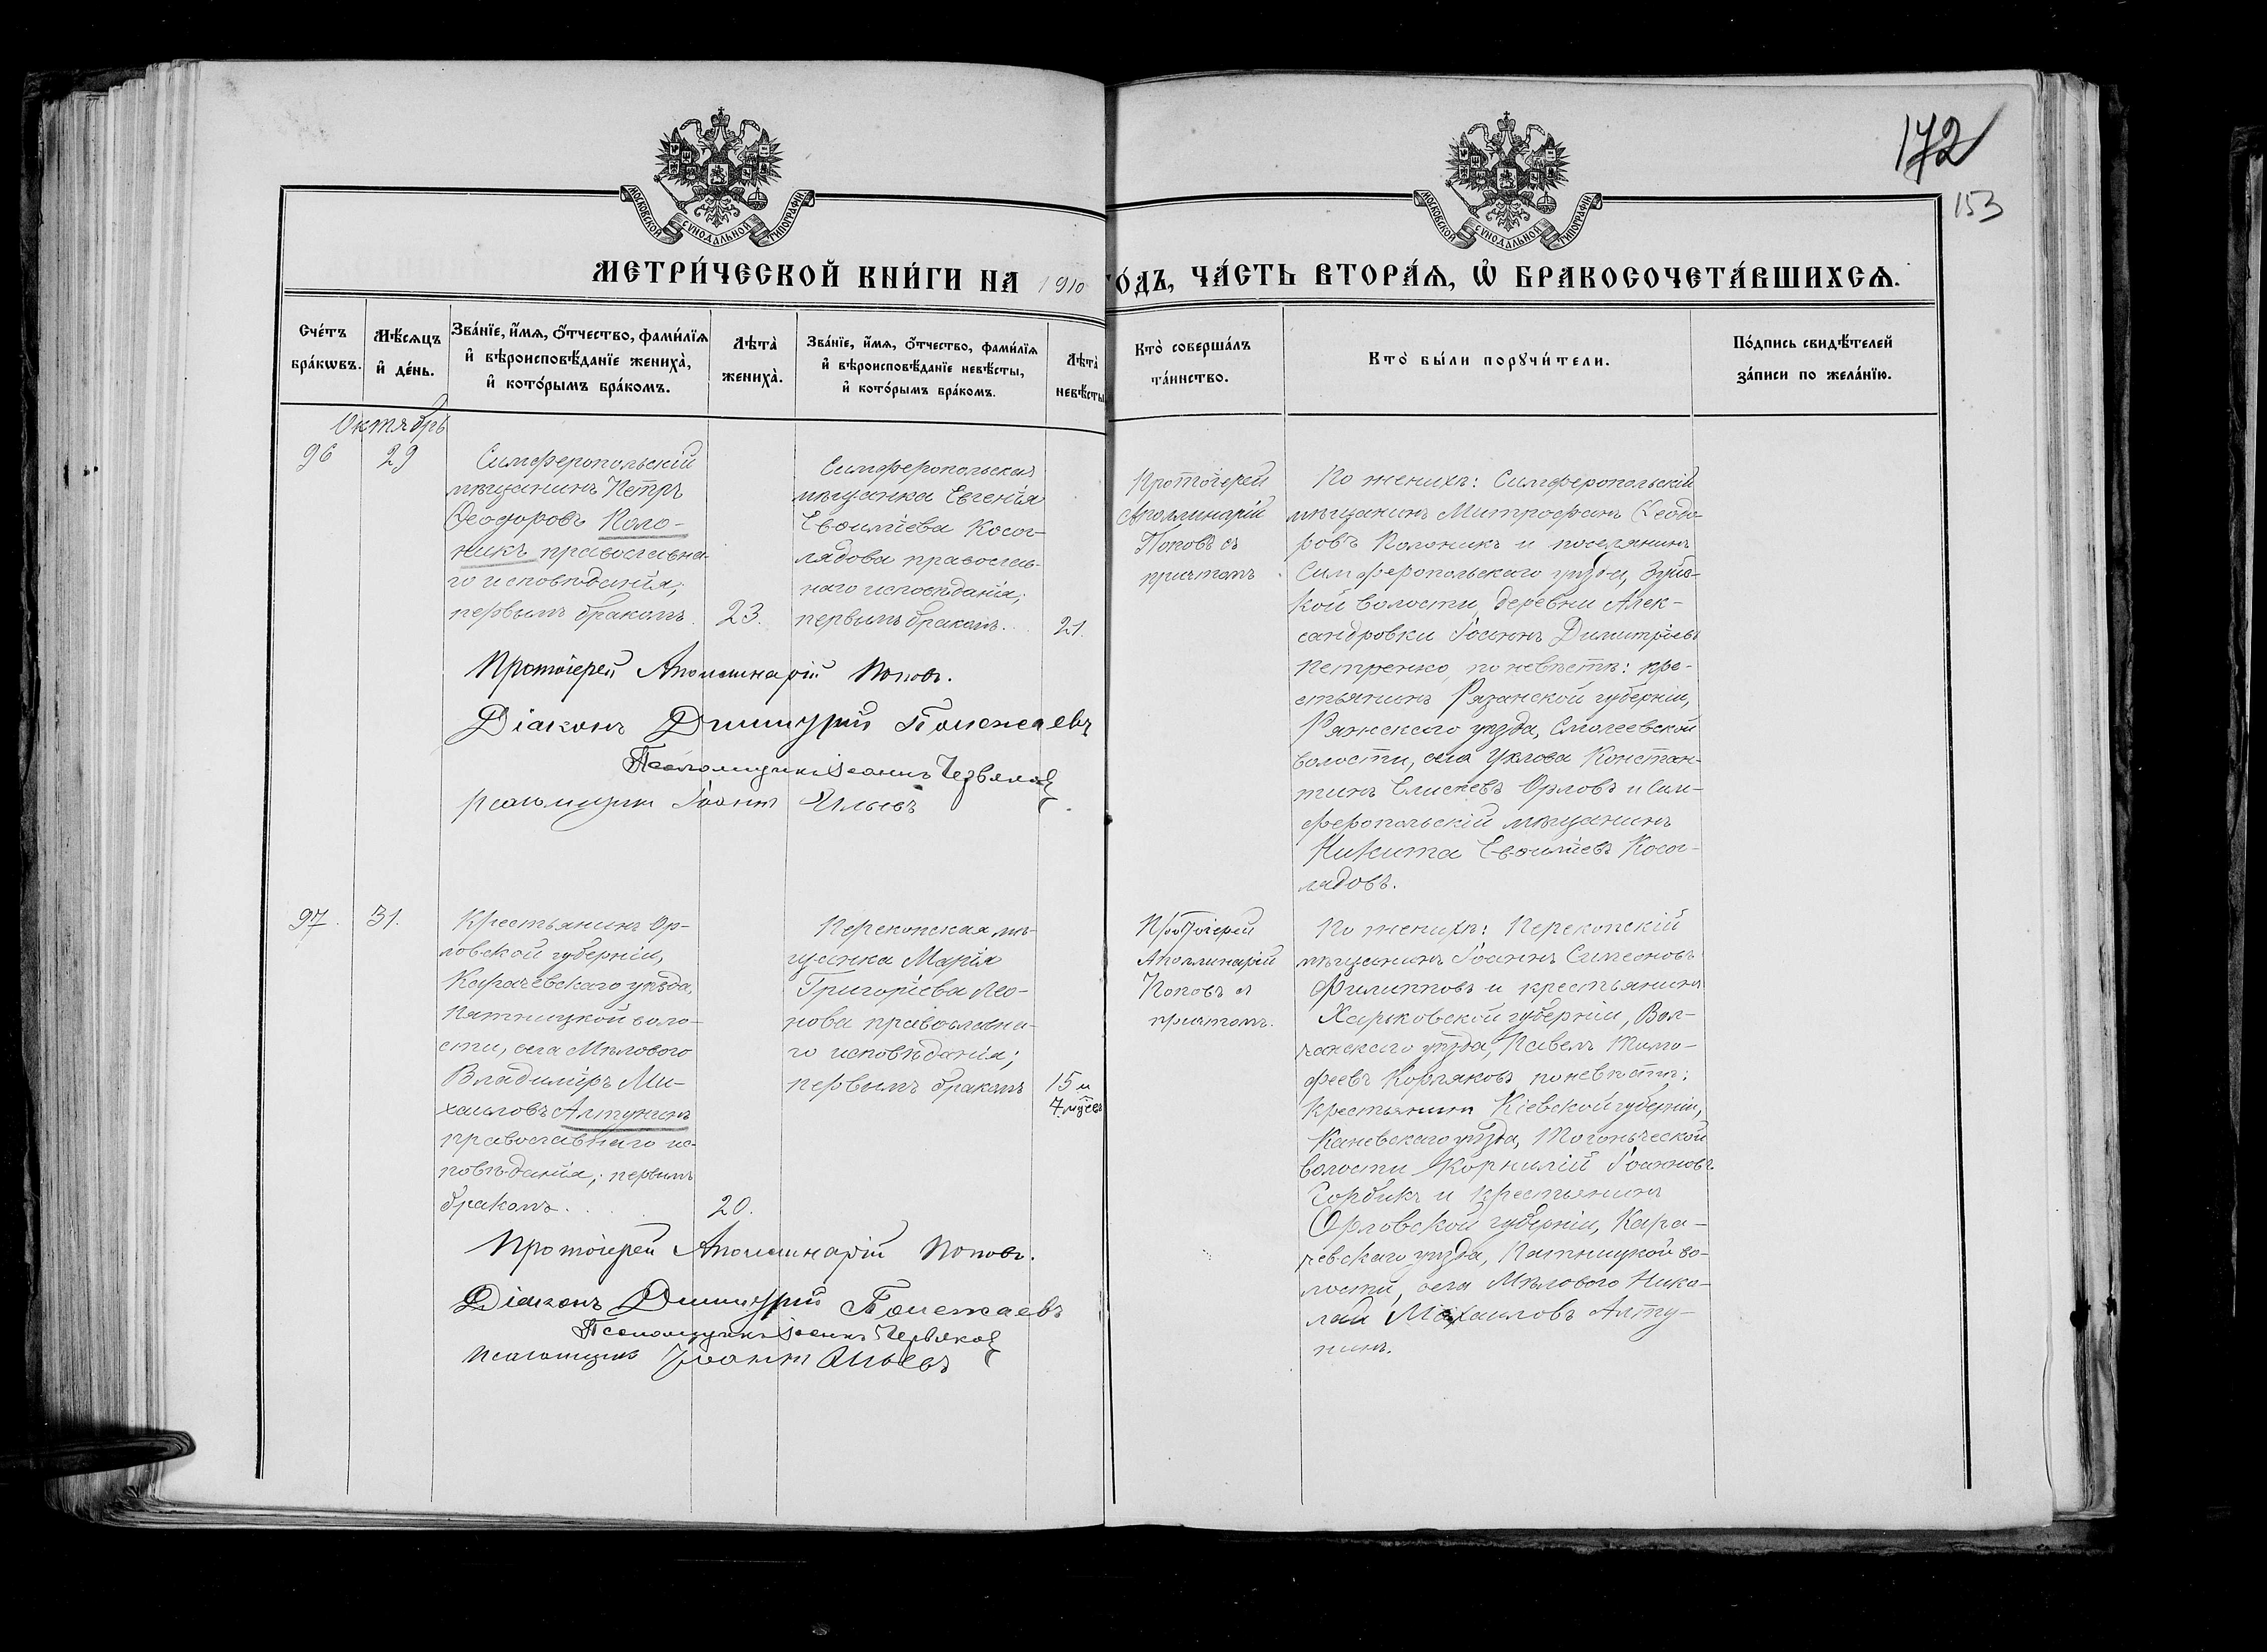 172
153
МОСКОВСКОЙ СУНОДАЛЬНОЙ ТИПОГРАФІИ
МОСКОВСКОЙ СУНОДАЛЬНОЙ ТИПОГРАФІИ
МЕТРИ́ЧЕСКОЙ КНИ́ГИ НА 1910 ГО́ДЪ, ЧА́СТЬ ВТОРА́Ѧ, Ѽ БРАКОСОЧЕТА́ВШИХСѦ.
Сче́тъ
бра́кѡвъ.
Мѣ́сѧцъ
и҆ де́нь.
Зва́нїе, и҆́мѧ, ѻ҆́тчество, фами́лїѧ
и҆ вѣроисповѣ́данїе жениха̀,
и҆ кото́рымъ бра́комъ.
Лѣта̀
жениха̀.
Зва́нїе, и҆́мѧ, ѻ҆́тчество, фами́лїѧ
и҆ вѣроисповѣ́данїе невѣ́сты,
и҆ кото́рымъ бра́комъ.
Лѣта̀
невѣ́сты
Кто̀ соверша́лъ
та́инство.
Кто̀ бы́ли порꙋчи́тели.
По́дпись свидѣ́телей
за́писи по жела́нїю.
Октябрь
96
29
Симферопольскій
мѣщанинъ Петръ
Ѳеодоровъ Поло-
никъ православна-
го исповѣданія;
первымъ бракомъ.
23.
Симферопольская
мѣщанка Евгенія
Евѳиміева Косог-
лядова православ-
наго исповѣданія;
первымъ бракомъ.
21.
Протоіерей
Аполлинарій
Поповъ съ
причтомъ
По женихѣ: Симферопольскій
мѣщанинъ Митрофанъ Ѳеодо-
ровъ Полоникъ и поселянинъ
Симферопольскаго уѣзда, Зуйс-
кой волости, деревни Алек-
сандровки Іоаннъ Димитріевъ
Петренко, по невѣстѣ: кре-
стьянинъ Рязанской губерніи,
Ряжскаго уѣзда, Смолеевской
волости, села Ухлова Констан-
тинъ Елисеевъ Орловъ и Сим-
феропольскій мѣщанинъ
Никита Евѳиміевъ Косог-
лядовъ.
Протоіерей Аполлинарій Поповъ.
Діаконъ Димитрій Полежаевъ
Псаломщикъ Іоаннъ Червяковъ
Псаломщикъ Іоаннъ Ильевъ
97.
31.
Крестьянинъ Ор-
ловской губерніи,
Карачевскаго уѣзда,
Пятницкой воло-
сти, села Мѣлового
Владиміръ Ми-
хаиловъ Алтунинъ
православнаго ис-
повѣданія; первымъ
бракомъ.
20.
Перекопская мѣ-
щанка Марія
Григоріева Лео-
нова православна-
го исповѣданія;
первымъ бракомъ
15 и
7 мѣсяц
Протоіерей
Аполлинарій
Поповъ съ
причтомъ.
По женихѣ: Перекопскій
мѣщанинъ Іоаннъ Симеоновъ
Филипповъ и крестьянинъ
Харьковской губерніи, Вол-
чанскаго уѣзда, Павелъ Тимо-
феевъ Корляковъ по невѣстѣ:
Крестьянинъ Кіевской губерніи,
Каневскаго уѣзда,
волости Корнилій Іоанновъ
Горбикъ и крестьянинъ
Орловской губерніи, Кара-
чевскаго уѣзда, Пятницкой во-
лости, села Мѣлового Нико-
лай Михаиловъ Алту-
нинъ.
Протоіерей Аполлинарій Поповъ.
Діаконъ Димитрій Полежаевъ
Псаломщикъ Іоаннъ Червяковъ
Псаломщикъ Іоаннъ Ильевъ